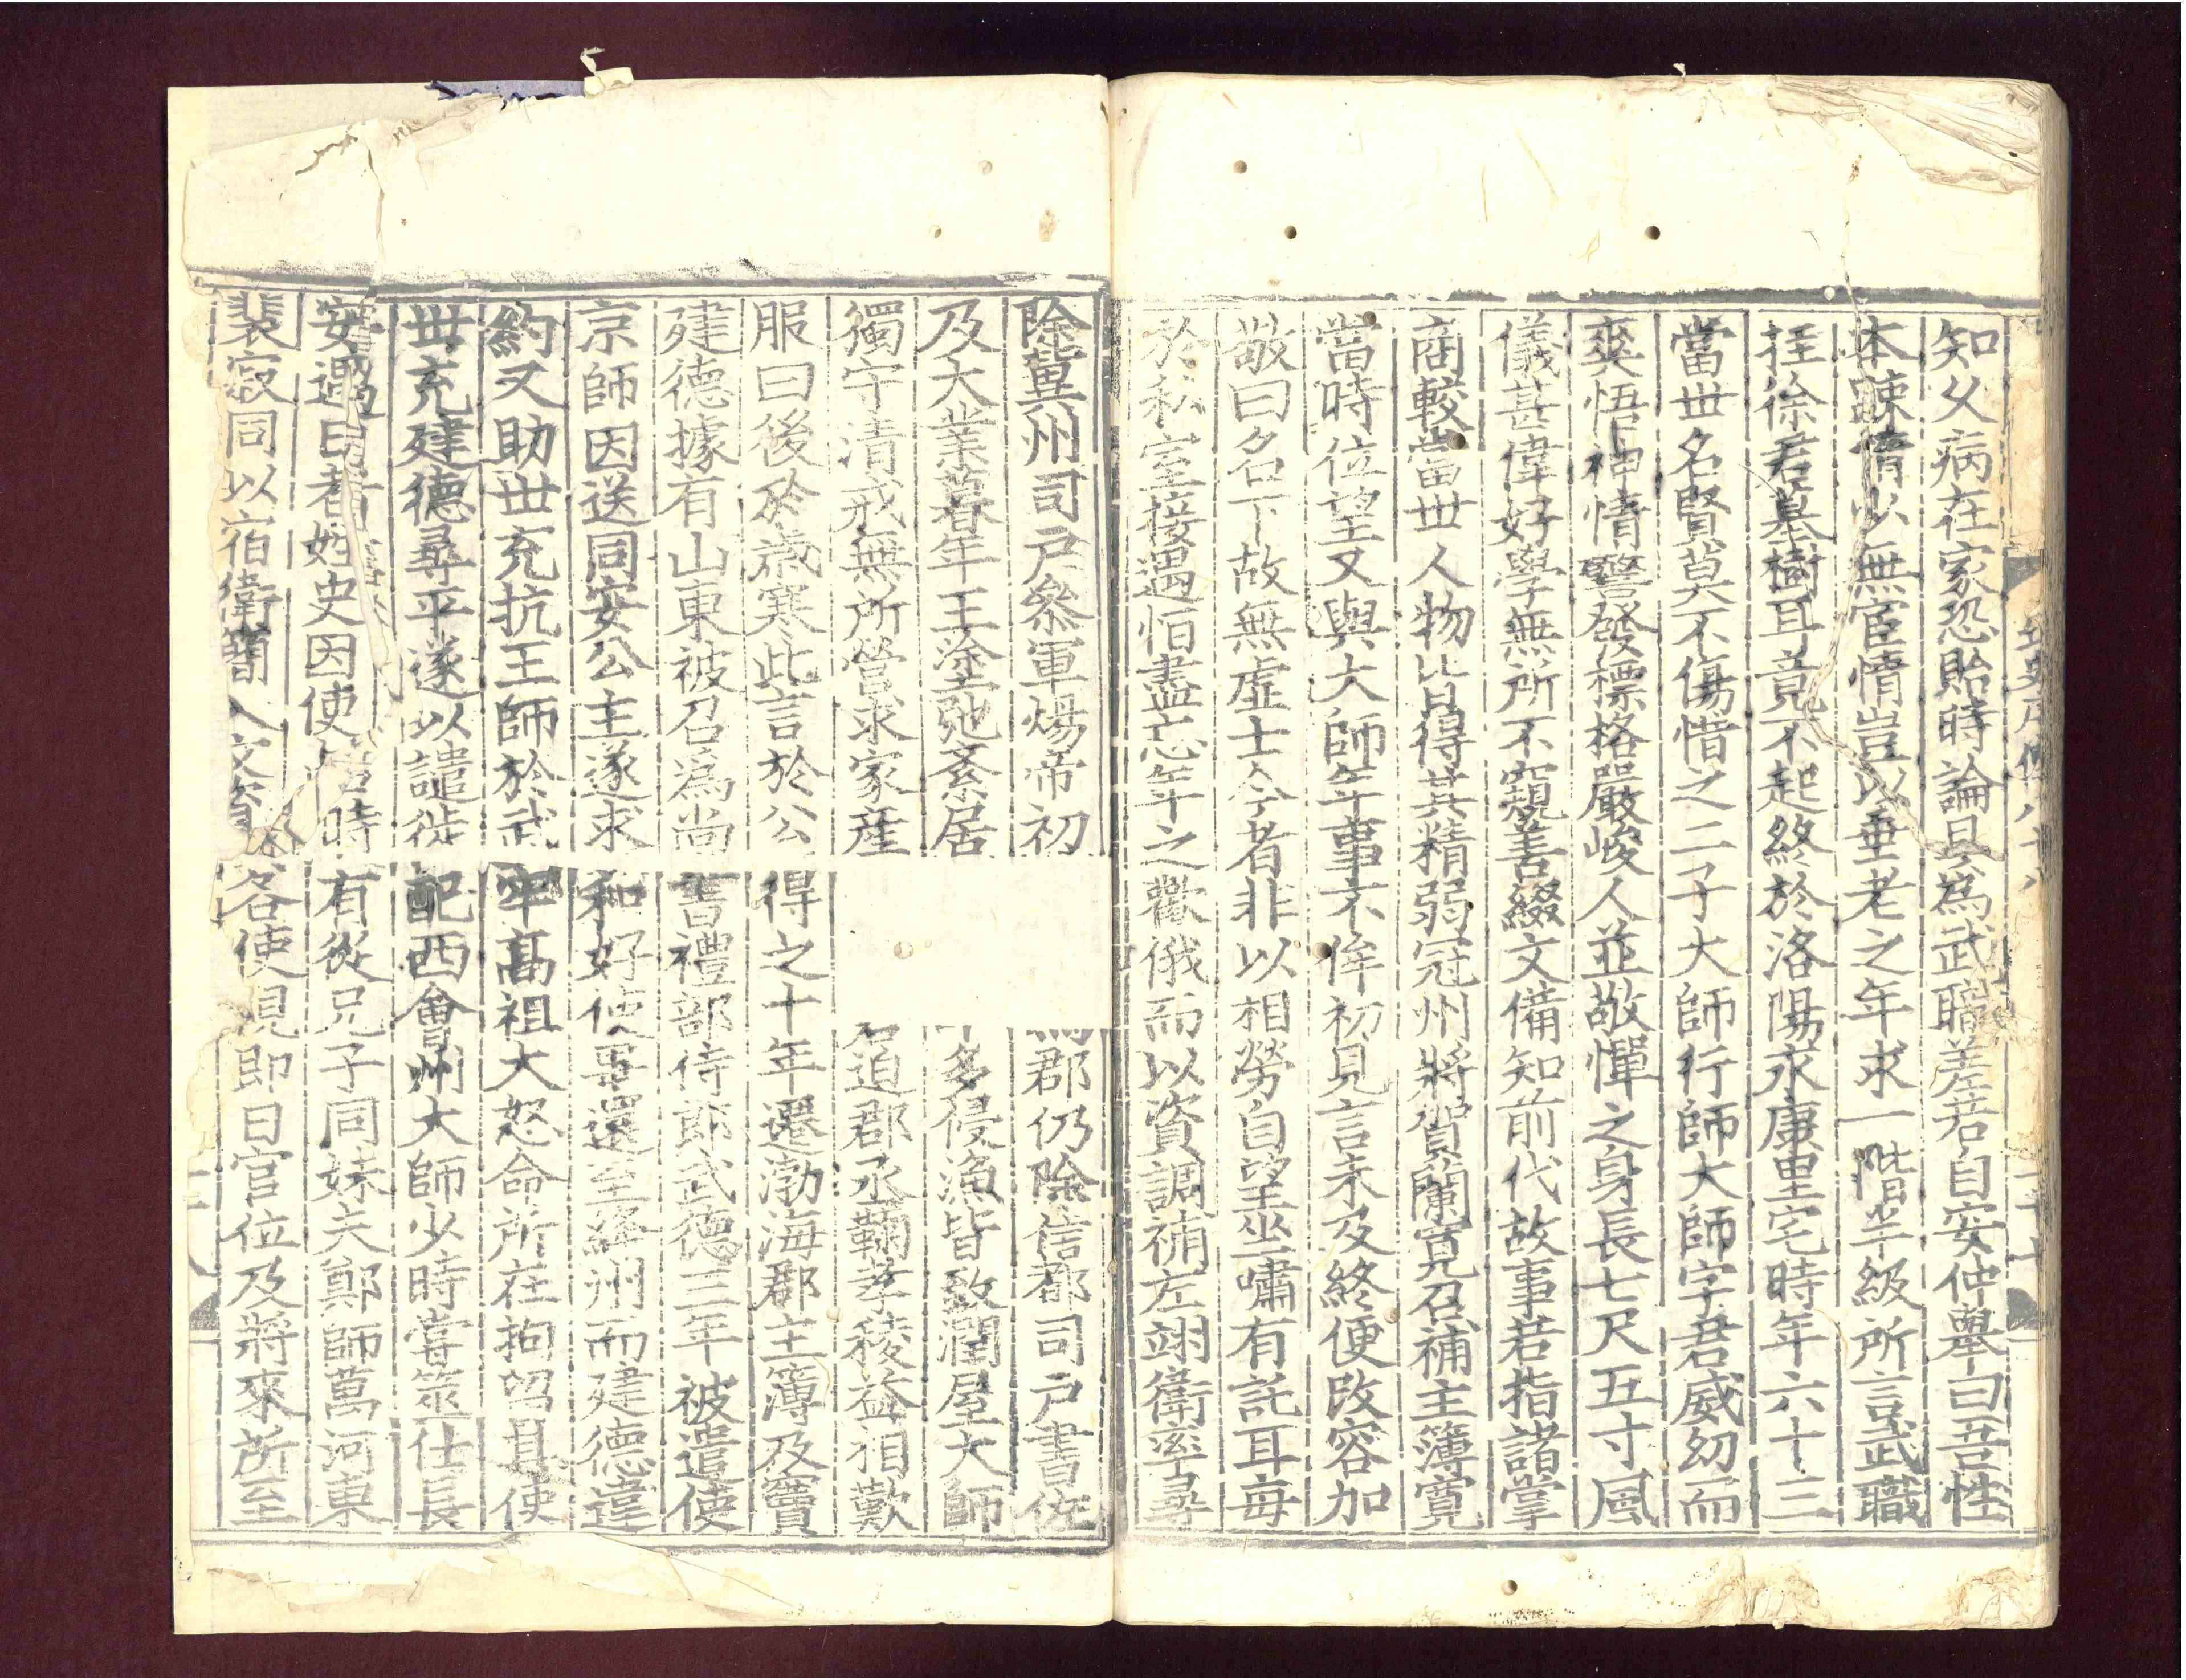 知父病在家恐貽時論具為武職羞若自安仲舉曰吾性
本疎惰少無宦情豈以垂老之年求一階半級所言武職
挂徐君墓樹耳竟不起終於洛陽永康里宅時年六十三
當世名賢莫不傷惜之二子大師行師大師字君威幼而
爽悟神情警發標格嚴峻人並敬憚之身長七尺五寸風
儀甚偉好學無所不窺善綴文備知前代故事若指諸掌
商較當世人物皆得其精弱冠州將賀蘭寬召補主簿寬
當時位望又與大師年事不侔初見言未及終便改容加
敬曰名下故無虛士今者非以相勞自望坐嘯有託耳每
於私室接遇恒盡忘年之歡俄而以資調補左翊衛率尋
除冀州司戶叅軍煬帝初郡仍除信都司戶書佐
及大業暮年王塗弛紊居多侵漁皆致潤屋大師
獨守清戒無所營求家產迫郡丞鞠孝稜益相歎
服曰後於歲寒此言於公得之十年遷渤海郡主簿及竇
建德據有山東被召為尚書禮部侍郎武德三年被遣使
京師因送同安公主遂求和好使畢還至絳州而建德違
約又助世充抗王師於武牢高祖大怒命所在拘留其使
世充建德尋平遂以譴徙配西會州大師少時嘗筮仕長
安遇日者姓史因使時有從兄子同妹夫鄭師萬河東
裴寂同以宿衛簡入文資各使視即日官位及將來所至